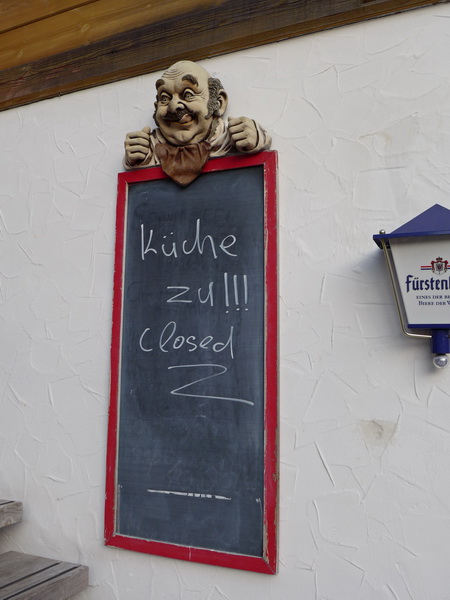 Küche
zu!!!
closed
Fürstenb
EINES DER BE
BIERE DER W